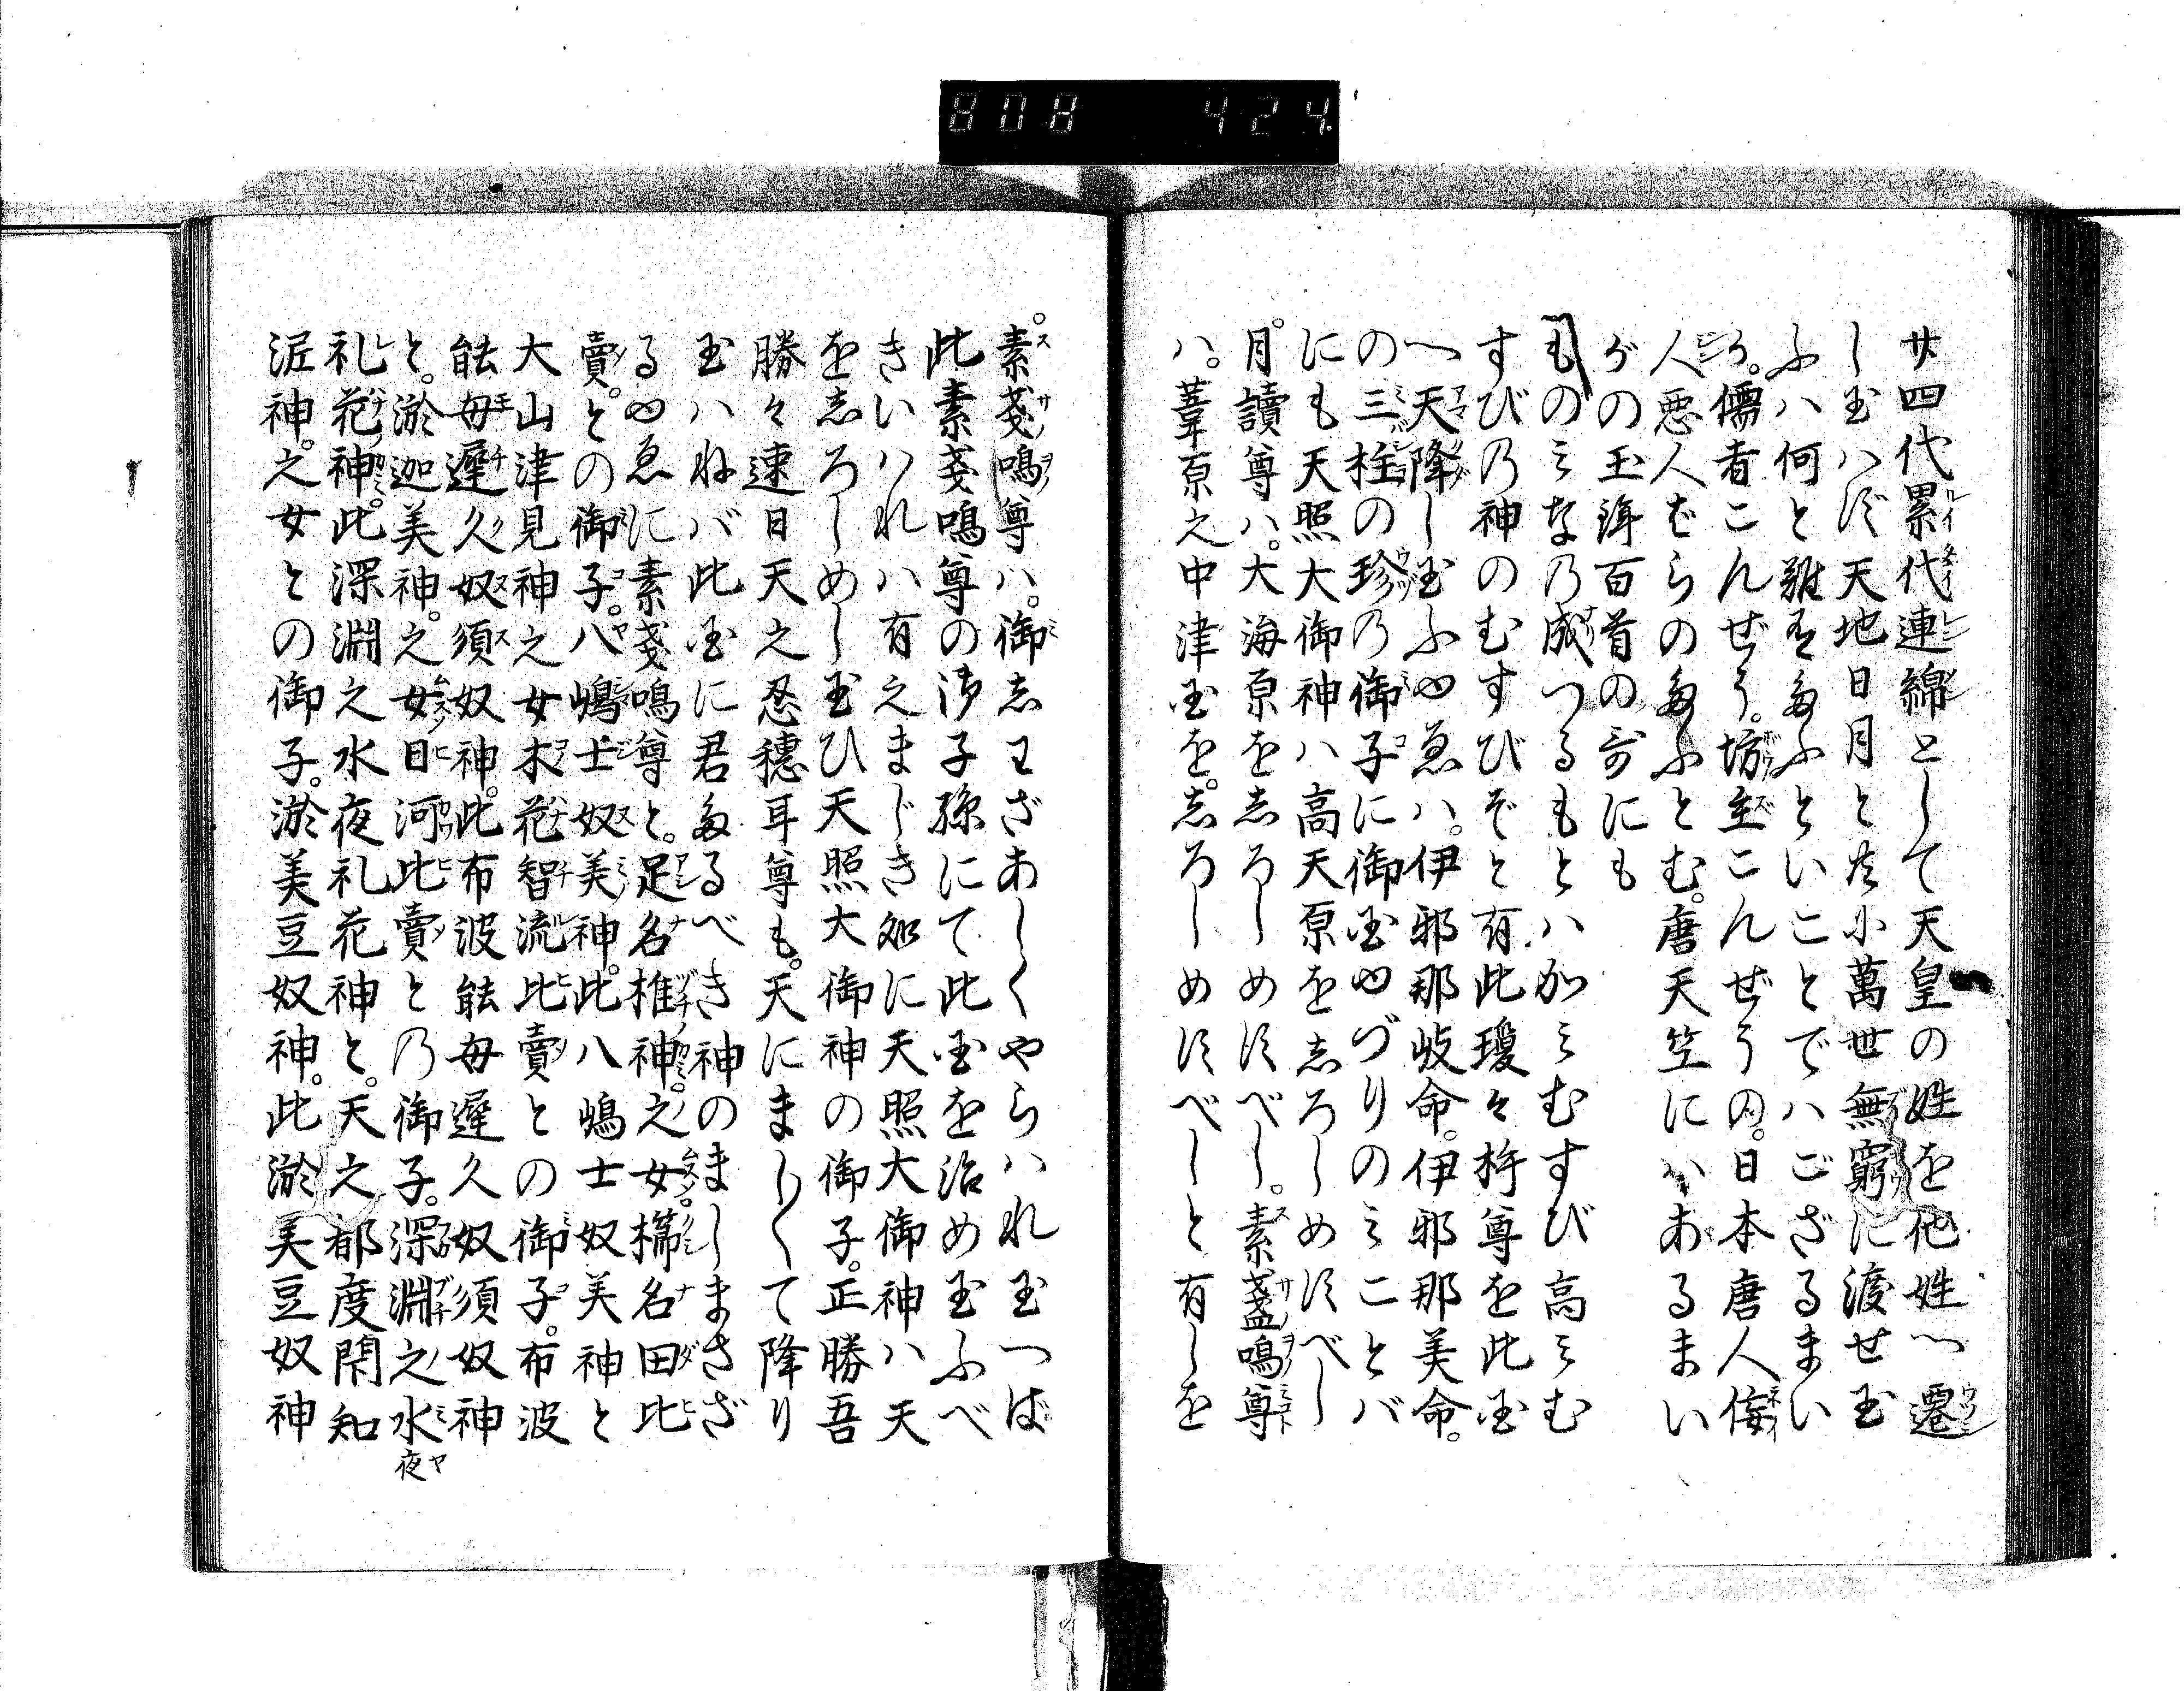 808 424.
廿四代累代連綿として天皇の姓を他姓へ遷
し玉ハず天地日月と共に萬世無窮に渡せ玉
ふハ何と難有多ふといことでハござるまい
か。儒者こんぜう。坊主こんぜうの。日本唐人倭
人悪人ばらの多ふとむ。唐天竺にハあるまい
がの玉鉾百首の哥にも
ものみなの成つるもとハかみむすび高みむ
すびの神のむすびぞと有此瓊々杵尊を此国
へ天降し玉ふゆゑハ。伊邪那岐命。伊邪那美命。
の三柱の珍の御子に御国ゆづりのみことバ
にも天照大御神ハ高天原をしろしめすべし
月讀尊ハ。大海原をしろしめすべし。素盞嗚尊
ハ。葦原之中津国を。しろしめすべしと有しを
素戔嗚尊ハ。御しわざあしくやらハれ玉つば
此素戔嗚尊の御子孫にて此国を治め玉ふべ
きいハれハ有之まじき処に天照大御神ハ天
をしろしめし玉ひ天照大御神の御子。正勝吾
勝々速日天之忍穂耳尊も。天にましくて降り
玉ハねバ此国に君たるべき神のましまさざ
るゆゑに素戔嗚尊と。足名椎神。之女。櫛名田比
賣。との御子。八嶋士奴美神。此八嶋士奴美神と
大山津見神之女木花智流比賣との御子。布波
能母遲久奴須奴神。此布波能母遲久奴須奴神
と。淤迦美神。之女日河比賣との御子。深淵之水夜
礼花神。此深淵之水夜礼花神と。天之都度閇知
泥神。之女との御子。淤美豆奴神。此淤美豆奴神